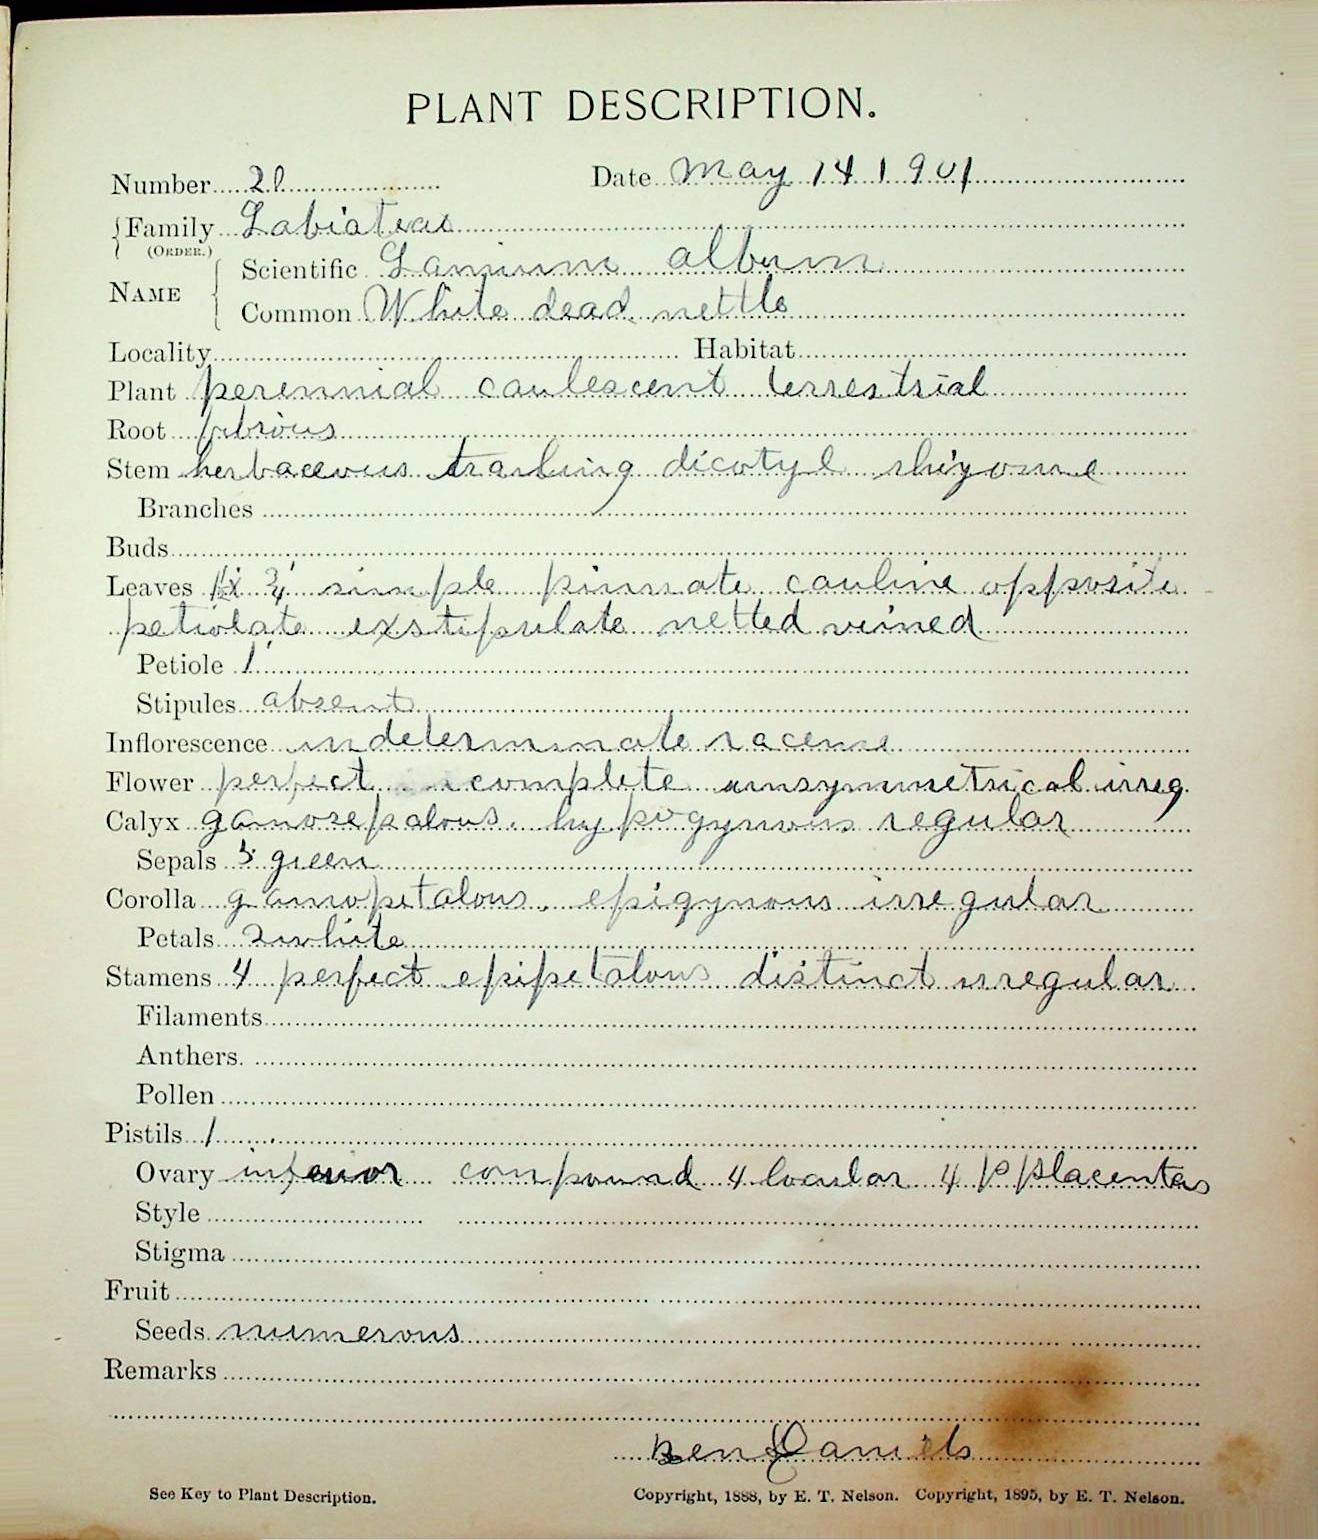 PLANT DESCRIPTION.
Number 20 Date May 14 1901
Family Labiateae
(ORDER.)
NAME Scientific Lamium album
Common White dead nettle
Locality Habitat
Plant perennial caulescent terrestrial
Root fibrous
Stem herbaceous trailing dicotyl rhizome
Branches
Buds
Leaves 3/4' simple pinnate cauline opposite
petiolate exstipulate netted veined
Petiole 1'
Stipules absent
Inflorescence indeterminate raceme
Flower perfect complete unsymmetrical irreg
Calyx gamosepalous. hypogynous regular
Sepals 5 green
Corolla gamopetalous. epigynous irregular
Petals 2 white
Stamens 4 perfect epipetalous distinct irregular
Filaments
Anthers.
Pollen
Pistils 1
Ovary inferior compound 4 locular 4 P Placentas
Style
Stigma
Fruit
Seeds numerous
Remarks
Ben Daniels
See Key to Plant Description. Copyright, 1888, by E. T. Nelson. Copyright, 1895, by E. T. Nelson.